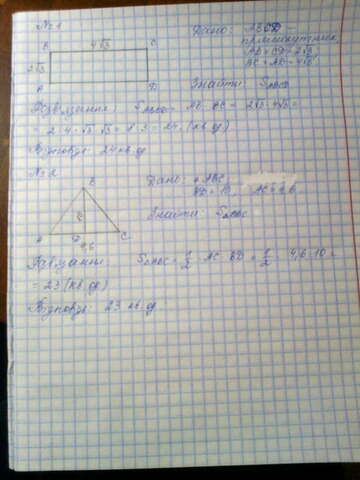 №1
Дано: ABCD
прямокутник
AB = CD = 2√3
BC = AD = 4√3
B 4√3 C
2√3
A D
Знайти: S ABCD
Розв'язання: S ABCD = AB · BC = 2√3 · 4√3 =
= 2 · 4 · √3 · √3 = 8 · 3 = 24 (кв. од)
Відповідь: 24 кв. од
№2
Дано: △ABC
BD = 10 AC = 4,6
Знайти: S
B
A D C
4,6
S = 1/2 · AC · BD = 1/2 · 4,6 · 10 =
= 23 (кв. од)
Відповідь: 23 кв. од